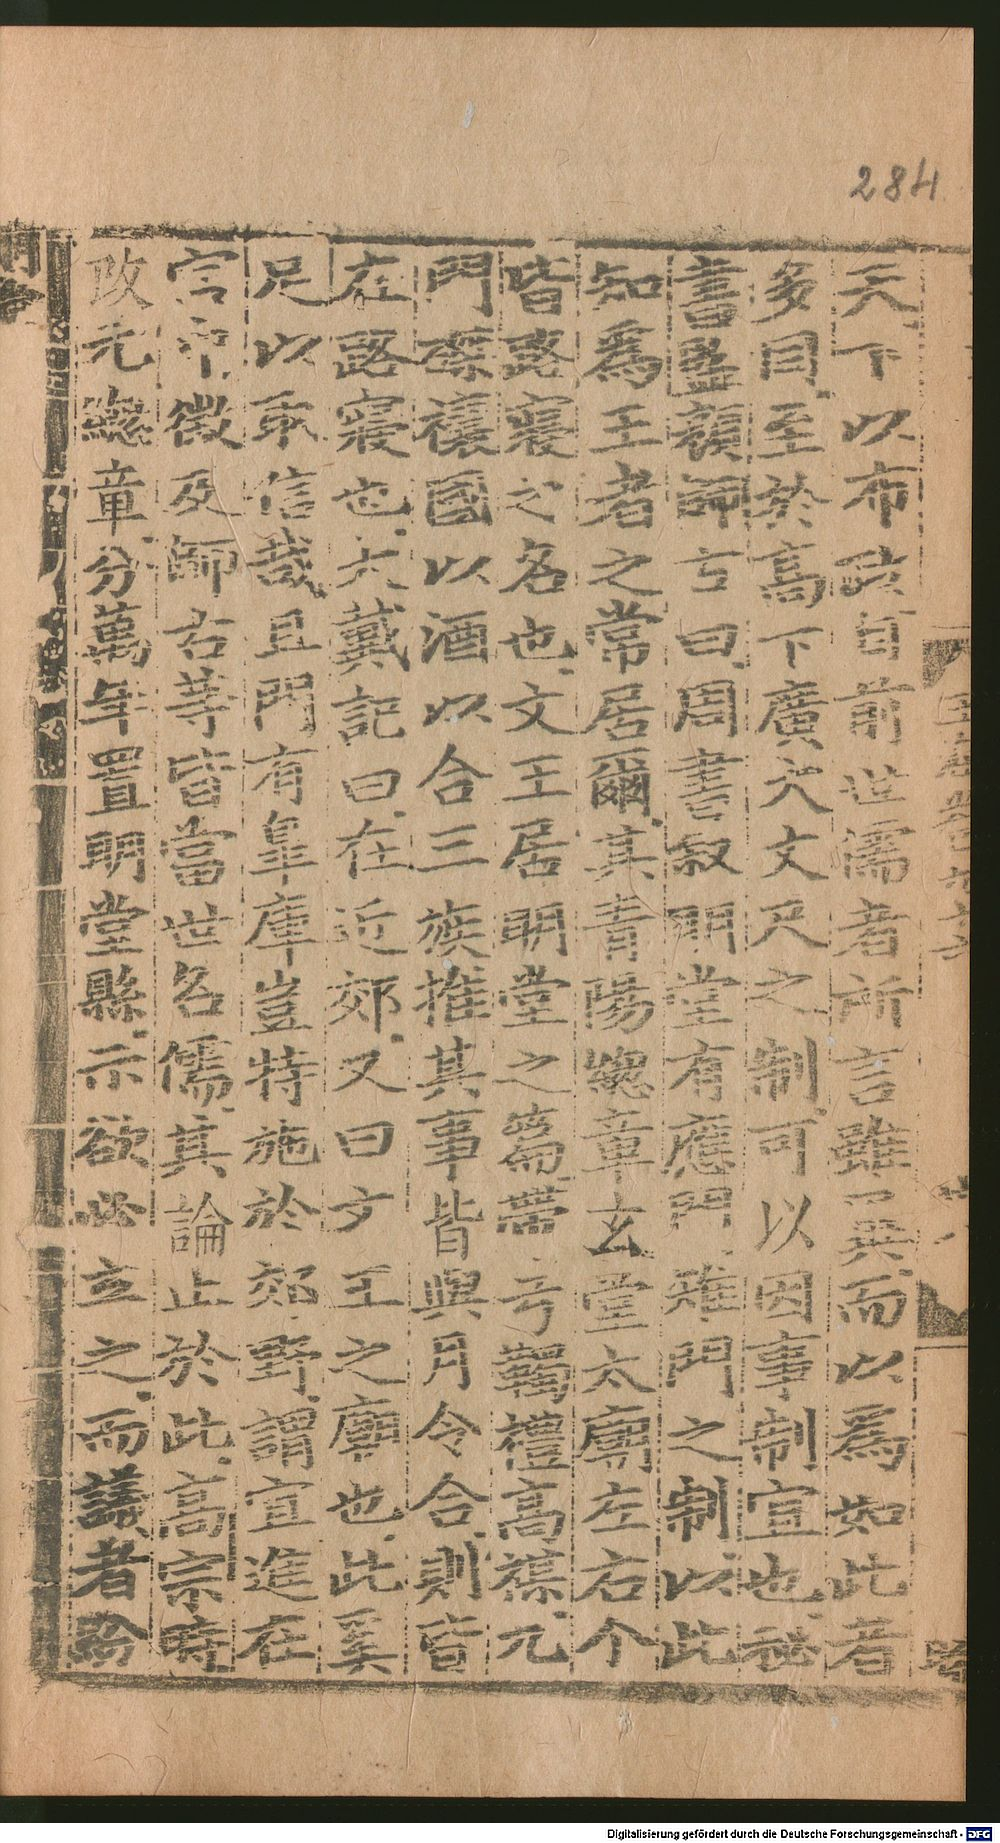 284
天下以布政自前世儒者所言雖異而以爲如此者
多同至於高下廣狹丈尺之制可以因事制宜也祕
書監顏師古曰周書叙明堂有應門雉門之制以此
知爲王者之常居爾其青陽總章玄堂太廟左右个
皆路寢之名也文王居明堂之篇帶弓韣禮高禖九
門磔禳國以酒以合三族推其事皆與月令合則皆
在路寢也大戴記曰在近郊又曰文王之廟也此奚
足以取信哉且門有皐庫豈特施於郊野謂宜進在
宮中徵及師古等皆當世名儒其論止於此高宗時
改元總章分萬年置明堂縣示欲必立之而議者紛
Digitalisierung gefördert durch die Deutsche Forschungsgemeinschaft - DFG